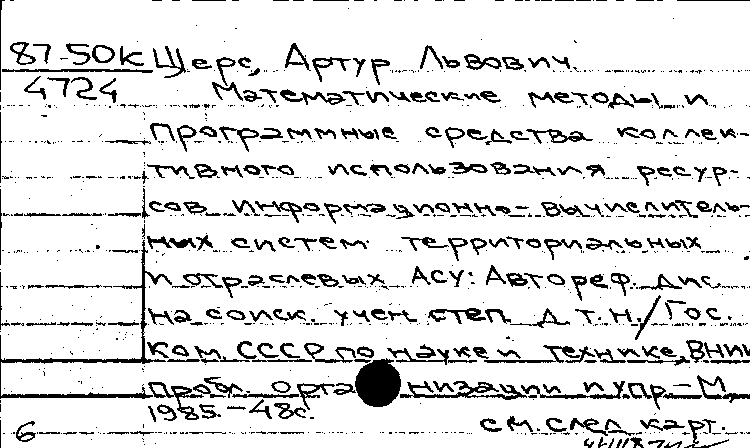 87-50К Щерс, Артур Львович.
4724 Математические методы и
программные средства коллек-
тивного использования ресур-
сов информационно-вычислитель-
ных систем территориальных
и отраслевых АСУ: Автореф. дис.
на соиск. учен. степ. д.т.н./Гос.
ком. СССР по науке и технике, ВНИИ
пробл. организации и упр.-М.,
1985.-48с.
6 см. след. карт.